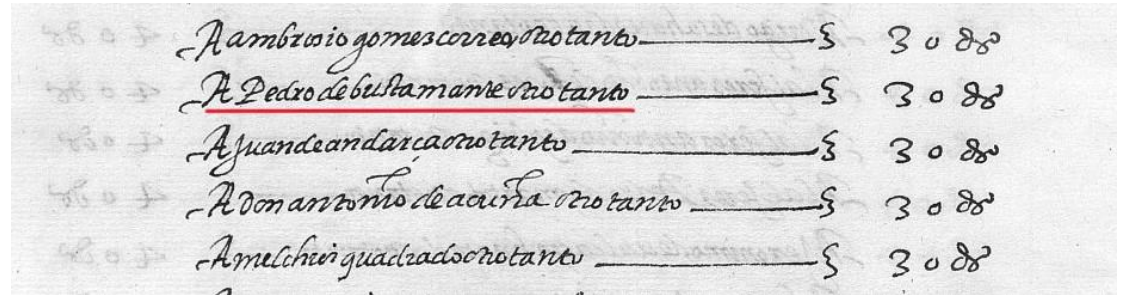 A ambrosio gomes correo, otro tanto § 30 ds
A Pedro de bustamante otro tanto § 30 ds
A Juan de andarça otro tanto § 30 ds
A Don antonio de acuña otro tanto § 30 ds
A melchior quadrado otro tanto § 30 ds